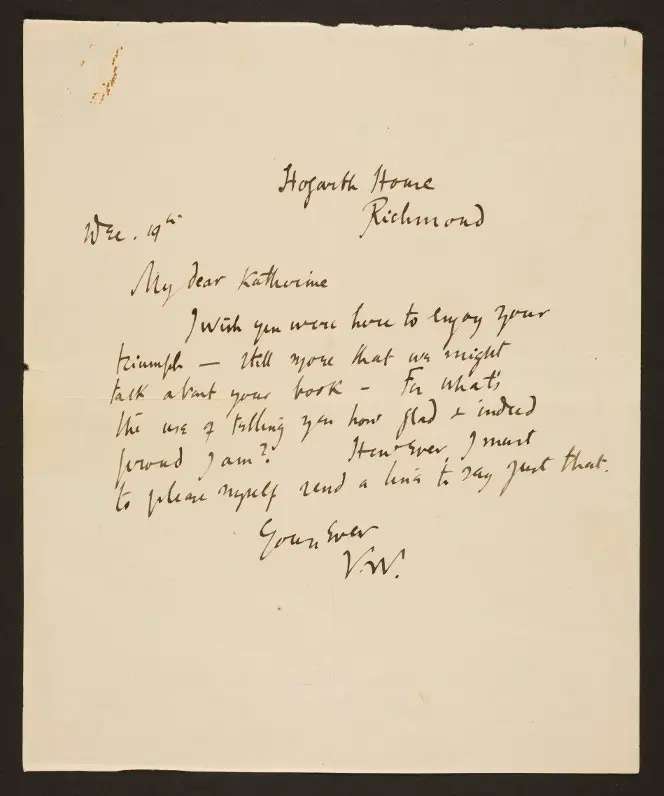 Hogarth House
Richmond
Dec. 19th
My dear Katherine
I wish you were here to enjoy your
triumph — still more that we might
talk about your book — For what's
the use of telling you how glad & indeed
proud I am? However, I must
to please myself send a line to say just that.
Yours Ever
V.W.